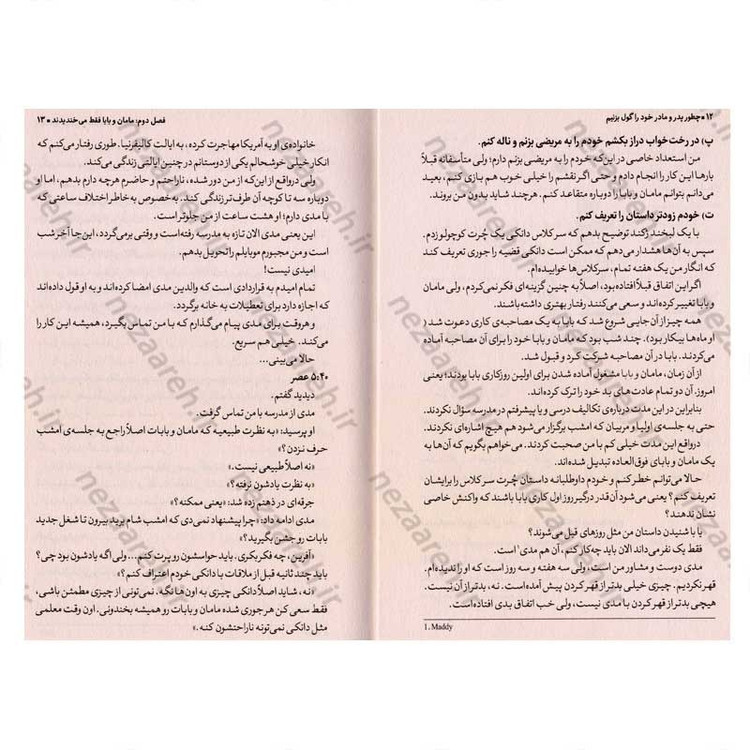 ۱۲ • چطور پدر و مادر خود را گول بزنیم
پ) در رخت‌خواب دراز بکشم خودم را به مریضی بزنم و ناله کنم.
من استعداد خاصی در این‌که خودم را به مریضی بزنم دارم؛ ولی متأسفانه قبلاً
بارها این کار را انجام دادم و حتی اگر نقشم را خیلی خوب هم بازی کنم، بعید
می‌دانم بتوانم مامان و بابا را دوباره متقاعد کنم. هرچند شاید بدون من بروند.
ت) خودم زودتر داستان را تعریف کنم.
با یک لبخند ژکند توضیح بدهم که سر کلاس دانکی یک چُرت کوچولو زدم.
سپس به آن‌ها هشدار می‌دهم که ممکن است دانکی قضیه را جوری تعریف کند
که انگار من یک هفته تمام، سر کلاس‌ها خوابیده‌ام.
اگر این اتفاق قبلاً افتاده بود، اصلاً به چنین گزینه‌ای فکر نمی‌کردم، ولی مامان
و بابا تغییر کرده‌اند و سعی می‌کنند رفتار بهتری داشته باشند.
همه چیز از آن جایی شروع شد که بابا به یک مصاحبه‌ی کاری دعوت شد (
او ماه‌ها بیکار بود). چند شب بود که مامان و بابا خود را برای آن مصاحبه آماده
می‌کردند. بابا در آن مصاحبه شرکت کرد و قبول شد.
از آن زمان، مامان و بابا مشغول آماده شدن برای اولین روز کاری بابا بودند؛ یعنی
امروز. آن دو تمام عادت‌های بد خود را ترک کرده‌اند.
بنابراین در این مدت درباره‌ی تکالیف درسی و یا پیشرفتم در مدرسه سؤال نکردند.
حتی به جلسه‌ی اولیا و مربیان که امشب برگزار می‌شود هم هیچ اشاره‌ای نکردند.
درواقع این مدت خیلی کم با من صحبت کردند. می‌خواهم بگویم که آن‌ها به
یک مامان و بابای فوق‌العاده تبدیل شده‌اند.
حالا می‌توانم خطر کنم و خودم داوطلبانه داستان چُرت سر کلاس را برایشان
تعریف کنم؟ یعنی می‌شود آن‌قدر درگیر روز اول کاری بابا باشند که واکنش خاصی
نشان ندهند؟
یا با شنیدن داستان من مثل روزهای قبل می‌شوند؟
فقط یک نفر می‌داند الان باید چه کار کنم، آن هم مدی¹ است.
مدی دوست و مشاور من است، ولی سه هفته و سه روز است که او را ندیده‌ام.
قهر نکردیم. چیزی خیلی بدتر از قهر کردن پیش آمده است. نه، بدتر از آن نیست.
هیچی بدتر از قهر کردن با مدی نیست، ولی خب اتفاق بدی افتاده است.
1. Maddy
فصل دوم: مامان و بابا فقط می‌خندیدند • ۱۳
خانواده‌ی او به آمریکا مهاجرت کرده، به ایالت کالیفرنیا. طوری رفتار می‌کنم که
انکار خیلی خوشحالم یکی از دوستانم در چنین ایالتی زندگی می‌کند.
ولی درواقع از این‌که از من دور شده، ناراحتم و حاضرم هرچه دارم بدهم، اما او
دوباره سه تا کوچه آن طرف‌تر زندگی کند. به‌خصوص به خاطر اختلاف ساعتی که
با مدی دارم؛ او هشت ساعت از من جلوتر است.
این یعنی مدی الان تازه به مدرسه رفته است و وقتی برمی‌گردد، این‌جا آخر شب
است و من مجبورم موبایلم را تحویل بدهم.
امیدی نیست!
تمام امیدم به قراردادی است که والدین مدی امضا کرده‌اند و به او قول داده‌اند
که اجازه دارد برای تعطیلات به خانه برگردد.
و هروقت برای مدی پیام می‌گذارم که با من تماس بگیرد، همیشه این کار را
می‌کند. خیلی هم سریع.
حالا می‌بینی...
۵:۴۰ عصر
دیدید گفتم.
مدی از مدرسه با من تماس گرفت.
او پرسید: «به نظرت طبیعیه که مامان و بابات اصلاً راجع به جلسه‌ی امشب
حرف نزدن؟»
«نه اصلاً طبیعی نیست.»
«به نظرت یادشون نرفته؟»
جرقه‌ای در ذهنم زده شد: «یعنی ممکنه؟»
مدی ادامه داد: «چرا پیشنهاد نمی‌دی که امشب شام برید بیرون تا شغل جدید
بابات رو جشن بگیرید؟»
«آفرین، چه فکر بکری. باید حواسشون رو پرت کنم... ولی اگه یادشون بود چی؟
باید چند ثانیه قبل از ملاقات با دانکی خودم اعتراف کنم؟»
«نه، شاید اصلاً دانکی چیزی به اون‌ها نگه. نمی‌تونی از چیزی مطمئن باشی،
فقط سعی کن هرجوری شده مامان و بابات رو همیشه بخندونی. اون وقت معلمی
مثل دانکی نمی‌تونه ناراحتشون کنه.»
nezaareh.ir